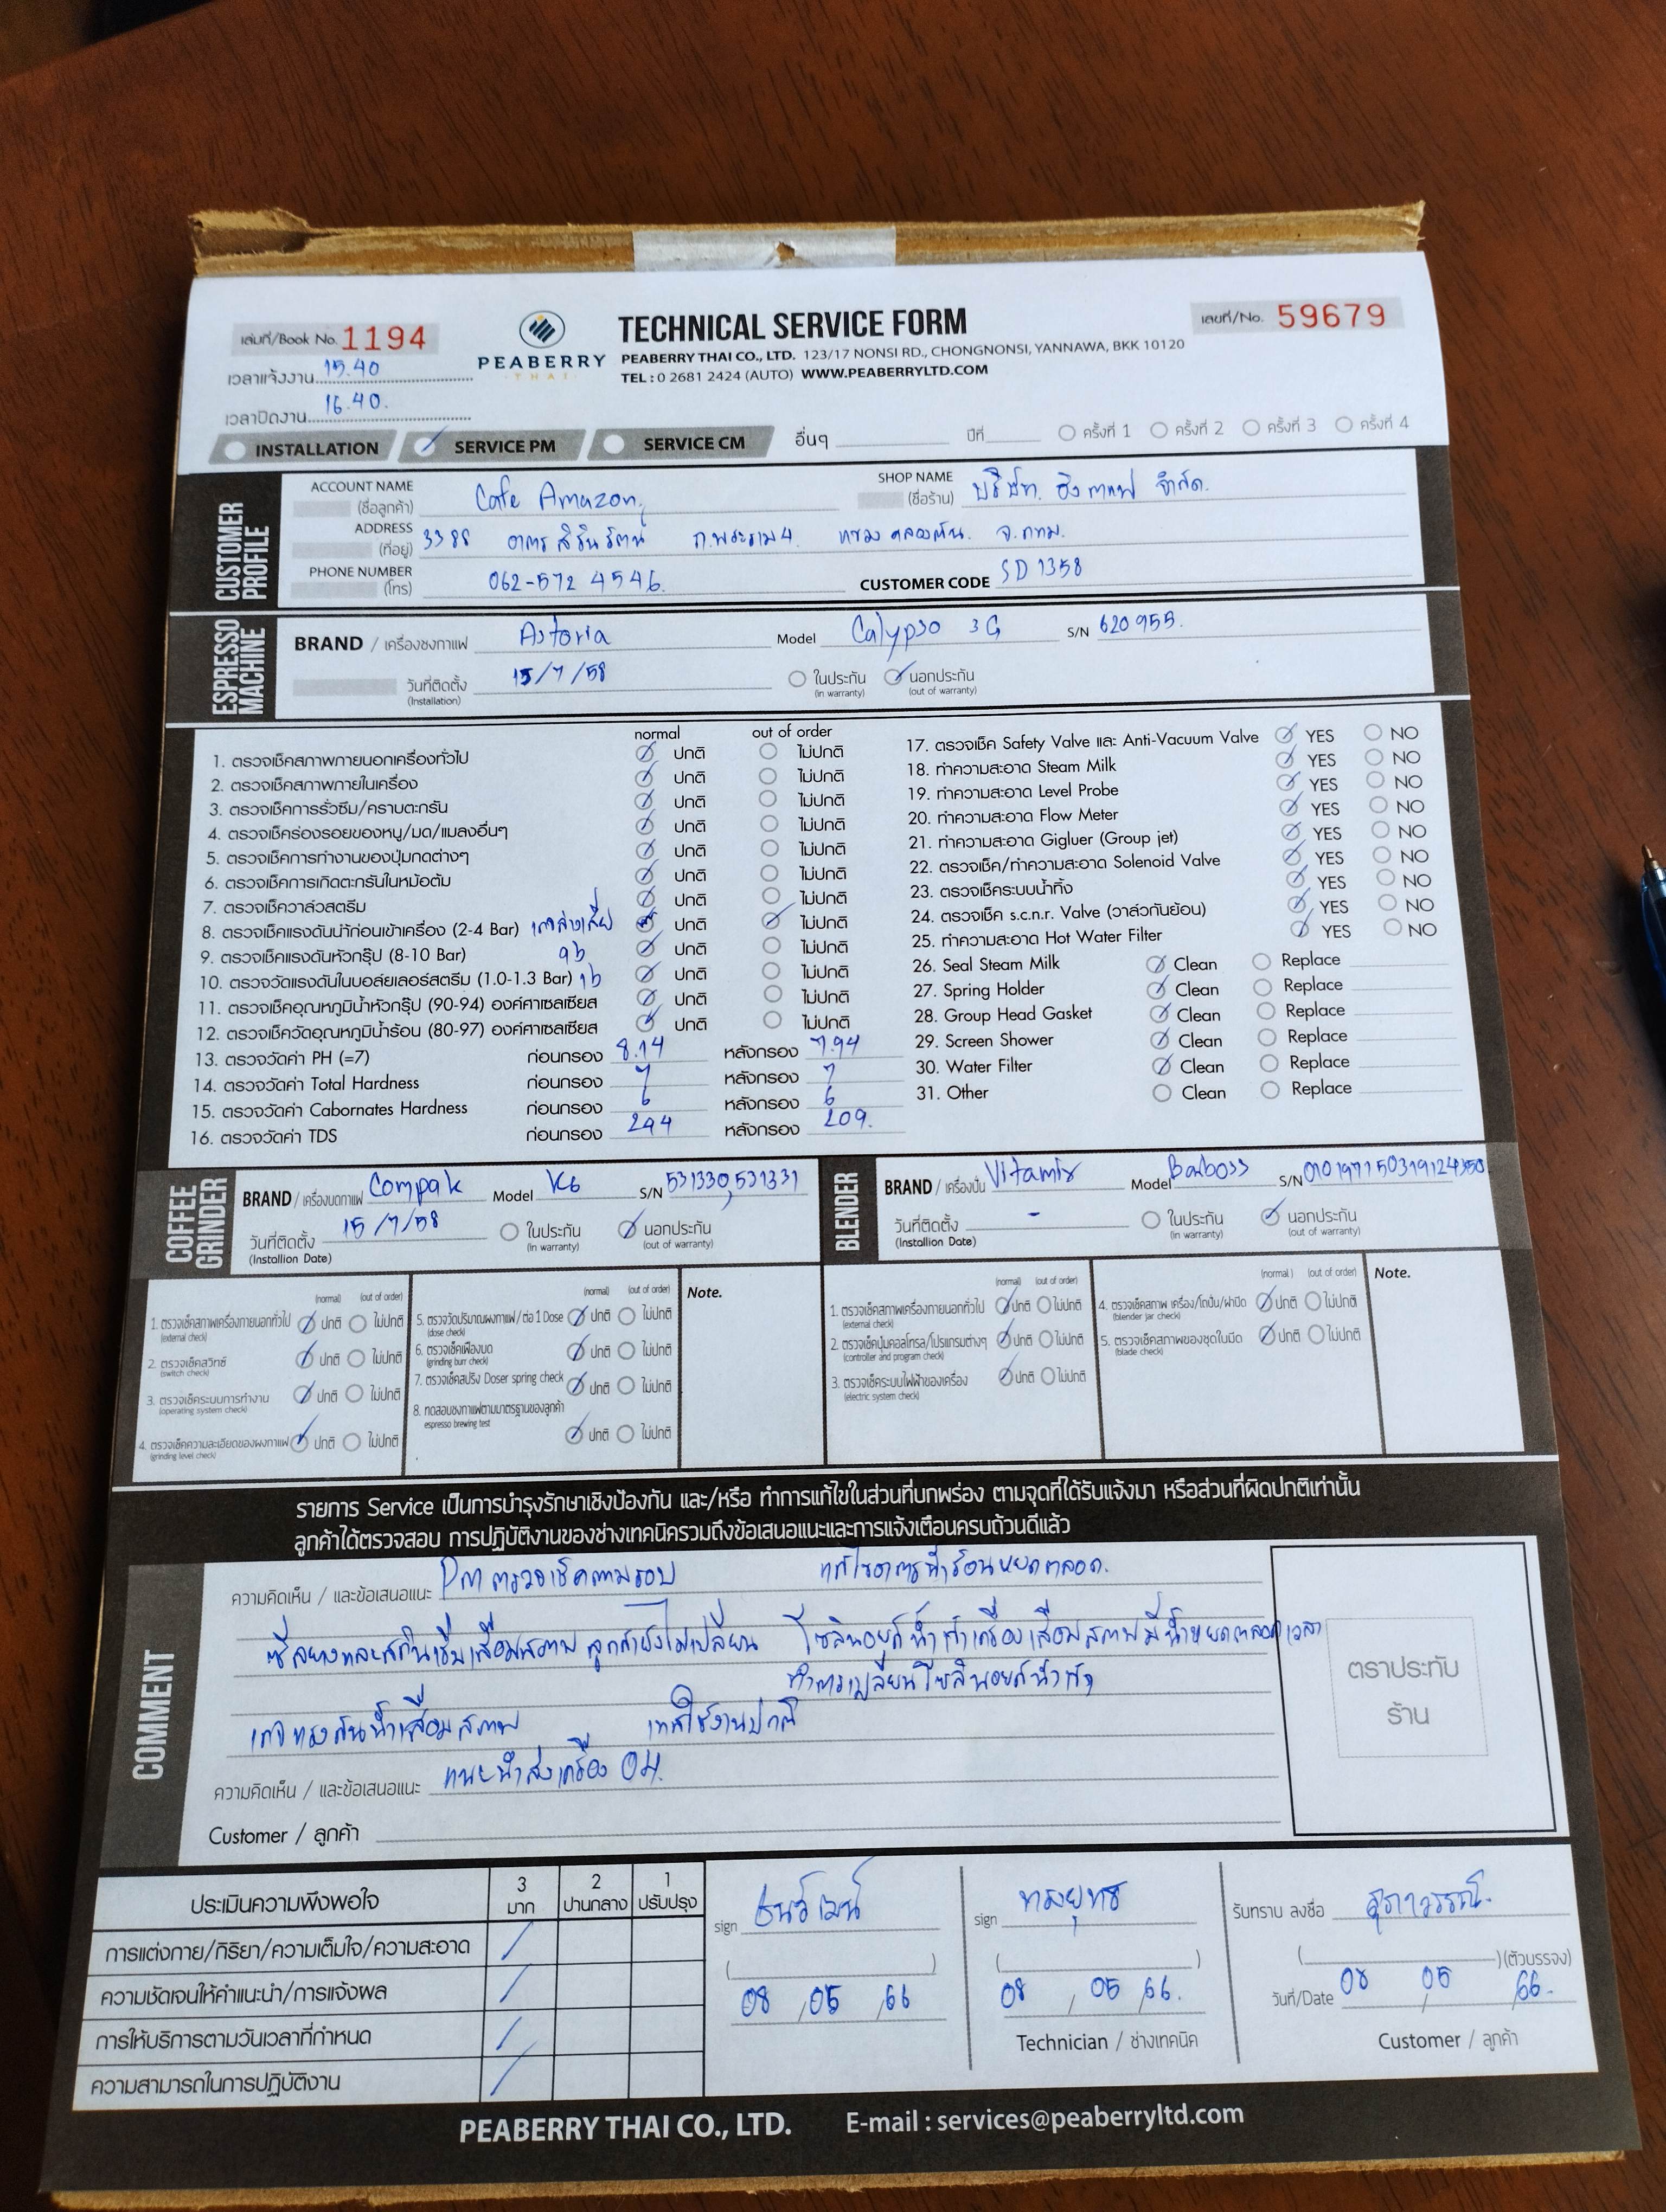 เล่มที่/Book No. 1194
PEABERRY
THAI
TECHNICAL SERVICE FORM
เลขที่/No. 59679
PEABERRY THAI CO., LTD. 123/17 NONSI RD., CHONGNONSI, YANNAWA, BKK 10120
TEL : 0 2681 2424 (AUTO) WWW.PEABERRYLTD.COM
เวลาแจ้งงาน 15.40
เวลาปิดงาน 16.40.
INSTALLATION SERVICE PM SERVICE CM อื่นๆ ปีที่ ครั้งที่ 1 ครั้งที่ 2 ครั้งที่ 3 ครั้งที่ 4
CUSTOMER PROFILE
ACCOUNT NAME (ชื่อลูกค้า) Cafe Amazon. SHOP NAME (ชื่อร้าน) บริษัท. จำกัด.
ADDRESS (ที่อยู่) 3388 อาคารสิรินรัตน์ ถ.พระราม 4. แขวง คลองตัน. จ.กทม.
PHONE NUMBER (โทร) 062-572 4546. CUSTOMER CODE SD 1358
ESPRESSO MACHINE
BRAND / เครื่องชงกาแฟ Astoria Model Calypso 3G S/N 620955.
วันที่ติดตั้ง (Installation) 15/7/58 ในประกัน (in warranty) นอกประกัน (out of warranty)
normal out of order
1. ตรวจเช็คสภาพภายนอกเครื่องทั่วไป ปกติ ไม่ปกติ
2. ตรวจเช็คสภาพภายในเครื่อง ปกติ ไม่ปกติ
3. ตรวจเช็คการรั่วซึม/คราบตะกรัน ปกติ ไม่ปกติ
4. ตรวจเช็คร่องรอยของหนู/มด/แมลงอื่นๆ ปกติ ไม่ปกติ
5. ตรวจเช็คการทำงานของปุ่มกดต่างๆ ปกติ ไม่ปกติ
6. ตรวจเช็คการเกิดตะกรันในหม้อต้ม ปกติ ไม่ปกติ
7. ตรวจเช็ควาล์วสตรีม ปกติ ไม่ปกติ
8. ตรวจเช็คแรงดันน้ำก่อนเข้าเครื่อง (2-4 Bar) เกจล่างเสีย ปกติ ไม่ปกติ
9. ตรวจเช็คแรงดันหัวกรุ๊ป (8-10 Bar) 9b ปกติ ไม่ปกติ
10. ตรวจวัดแรงดันในบอล์ยเลอร์สตรีม (1.0-1.3 Bar) 1b ปกติ ไม่ปกติ
11. ตรวจเช็คอุณหภูมิน้ำหัวกรุ๊ป (90-94) องค์ศาเซลเซียส ปกติ ไม่ปกติ
12. ตรวจเช็ควัดอุณหภูมิน้ำร้อน (80-97) องค์ศาเซลเซียส ปกติ ไม่ปกติ
13. ตรวจวัดค่า PH (=7) ก่อนกรอง 8.14 หลังกรอง 7.94
14. ตรวจวัดค่า Total Hardness ก่อนกรอง 7 หลังกรอง 7
15. ตรวจวัดค่า Cabornates Hardness ก่อนกรอง 6 หลังกรอง 6
16. ตรวจวัดค่า TDS ก่อนกรอง 244 หลังกรอง 209.
17. ตรวจเช็ค Safety Valve และ Anti-Vacuum Valve YES NO
18. ทำความสะอาด Steam Milk YES NO
19. ทำความสะอาด Level Probe YES NO
20. ทำความสะอาด Flow Meter YES NO
21. ทำความสะอาด Gigluer (Group jet) YES NO
22. ตรวจเช็ค/ทำความสะอาด Solenoid Valve YES NO
23. ตรวจเช็คระบบน้ำทิ้ง YES NO
24. ตรวจเช็ค s.c.n.r. Valve (วาล์วกันย้อน) YES NO
25. ทำความสะอาด Hot Water Filter YES NO
26. Seal Steam Milk Clean Replace
27. Spring Holder Clean Replace
28. Group Head Gasket Clean Replace
29. Screen Shower Clean Replace
30. Water Filter Clean Replace
31. Other Clean Replace
COFFEE GRINDER
BRAND / เครื่องบดกาแฟ Compak Model K6 S/N 531330,531331
วันที่ติดตั้ง (Installion Date) 15/7/58 ในประกัน (in warranty) นอกประกัน (out of warranty)
BLENDER
BRAND / เครื่องปั่น Vitamix Model Barboss S/N 010197150319124350
วันที่ติดตั้ง (Installion Date) - ในประกัน (in warranty) นอกประกัน (out of warranty)
(normal) (out of order)
1. ตรวจเช็คสภาพเครื่องภายนอกทั่วไป (external check) ปกติ ไม่ปกติ
2. ตรวจเช็คสวิทซ์ (switch check) ปกติ ไม่ปกติ
3. ตรวจเช็คระบบการทำงาน (operating system check) ปกติ ไม่ปกติ
4. ตรวจเช็คความละเอียดของผงกาแฟ (grinding level check) ปกติ ไม่ปกติ
(normal) (out of order)
5. ตรวจวัดปริมาณผงกาแฟ/ต่อ 1 Dose (dose check) ปกติ ไม่ปกติ
6. ตรวจเช็คเฟืองบด (grinding burr check) ปกติ ไม่ปกติ
7. ตรวจเช็คสปริง Doser spring check ปกติ ไม่ปกติ
8. ทดสอบชงกาแฟตามมาตรฐานของลูกค้า espresso brewing test ปกติ ไม่ปกติ
Note.
(normal) (out of order)
1. ตรวจเช็คสภาพเครื่องภายนอกทั่วไป (external check) ปกติ ไม่ปกติ
2. ตรวจเช็คปุ่มคอลโทรล/โปรแกรมต่างๆ (controller and program check) ปกติ ไม่ปกติ
3. ตรวจเช็คระบบไฟฟ้าของเครื่อง (electric system check) ปกติ ไม่ปกติ
(normal) (out of order)
4. ตรวจเช็คสภาพ เครื่อง/โถปั่น/ฝาปิด (blender jar check) ปกติ ไม่ปกติ
5. ตรวจเช็คสภาพของชุดใบมีด (blade check) ปกติ ไม่ปกติ
Note.
รายการ Service เป็นการบำรุงรักษาเชิงป้องกัน และ/หรือ ทำการแก้ไขในส่วนที่บกพร่อง ตามจุดที่ได้รับแจ้งมา หรือส่วนที่ผิดปกติเท่านั้น
ลูกค้าได้ตรวจสอบ การปฏิบัติงานของช่างเทคนิครวมถึงข้อเสนอแนะและการแจ้งเตือนครบถ้วนดีแล้ว
COMMENT
ความคิดเห็น / และข้อเสนอแนะ PM ตรวจเช็คตามรอบ แก้ไขอาการน้ำร้อนหยดตลอด.
ซีลยางและสกีนเชิ่มเสื่อมสภาพ ลูกค้ายังไม่เปลี่ยน โซลินอยด์น้ำเข้าเครื่องเสื่อมสภาพมีน้ำหยดตลอดเวลา
ทำการเปลี่ยนโซลินอยด์น้ำ
เกจแรงดันน้ำเสื่อมสภาพ เทสใช้งานปกติ
ความคิดเห็น / และข้อเสนอแนะ แนะนำส่งเครื่อง OH.
Customer / ลูกค้า
ตราประทับ
ร้าน
ประเมินความพึงพอใจ 3 มาก 2 ปานกลาง 1 ปรับปรุง
การแต่งกาย/กิริยา/ความเต็มใจ/ความสะอาด /
ความชัดเจนให้คำแนะนำ/การแจ้งผล /
การให้บริการตามวันเวลาที่กำหนด /
ความสามารถในการปฏิบัติงาน /
sign ธนวัฒน์
08 / 05 / 66
sign ทรงยุทธ
08 / 05 / 66.
Technician / ช่างเทคนิค
รับทราบ ลงชื่อ สุภาวรรณ์.
(ตัวบรรจง)
วันที่/Date 08 / 05 / 66.
Customer / ลูกค้า
PEABERRY THAI CO., LTD. E-mail : services@peaberryltd.com